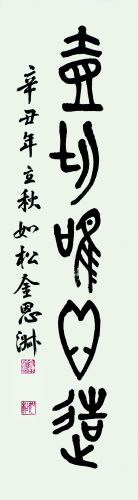 壹切唯心造
辛丑年立秋如松金